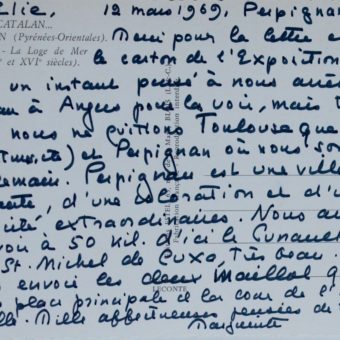 12 mars 1969, Perpignan
CATALAN...
N (Pyrénées-Orientales).
- La Loge de Mer
e et XVIe siècles).
Merci pour la lettre e
le carton de l'Exposition
un instant pensé à nous arrê
an à Angers pour la voir, mais
nous ne quittions Toulouse que
et Perpignan où nous so
emain. Perpignan est une ville
d'une coloration et d'u
ité extraordinaires. Nous a
voir à 50 kil. d'ici le
St. Michel de Cuxa, très beau.
envoi les deux Maillol q
place principale et la cour de l'
Mille affectueuses pensées de
Marguerite
LECONTE
Reproduction interdite